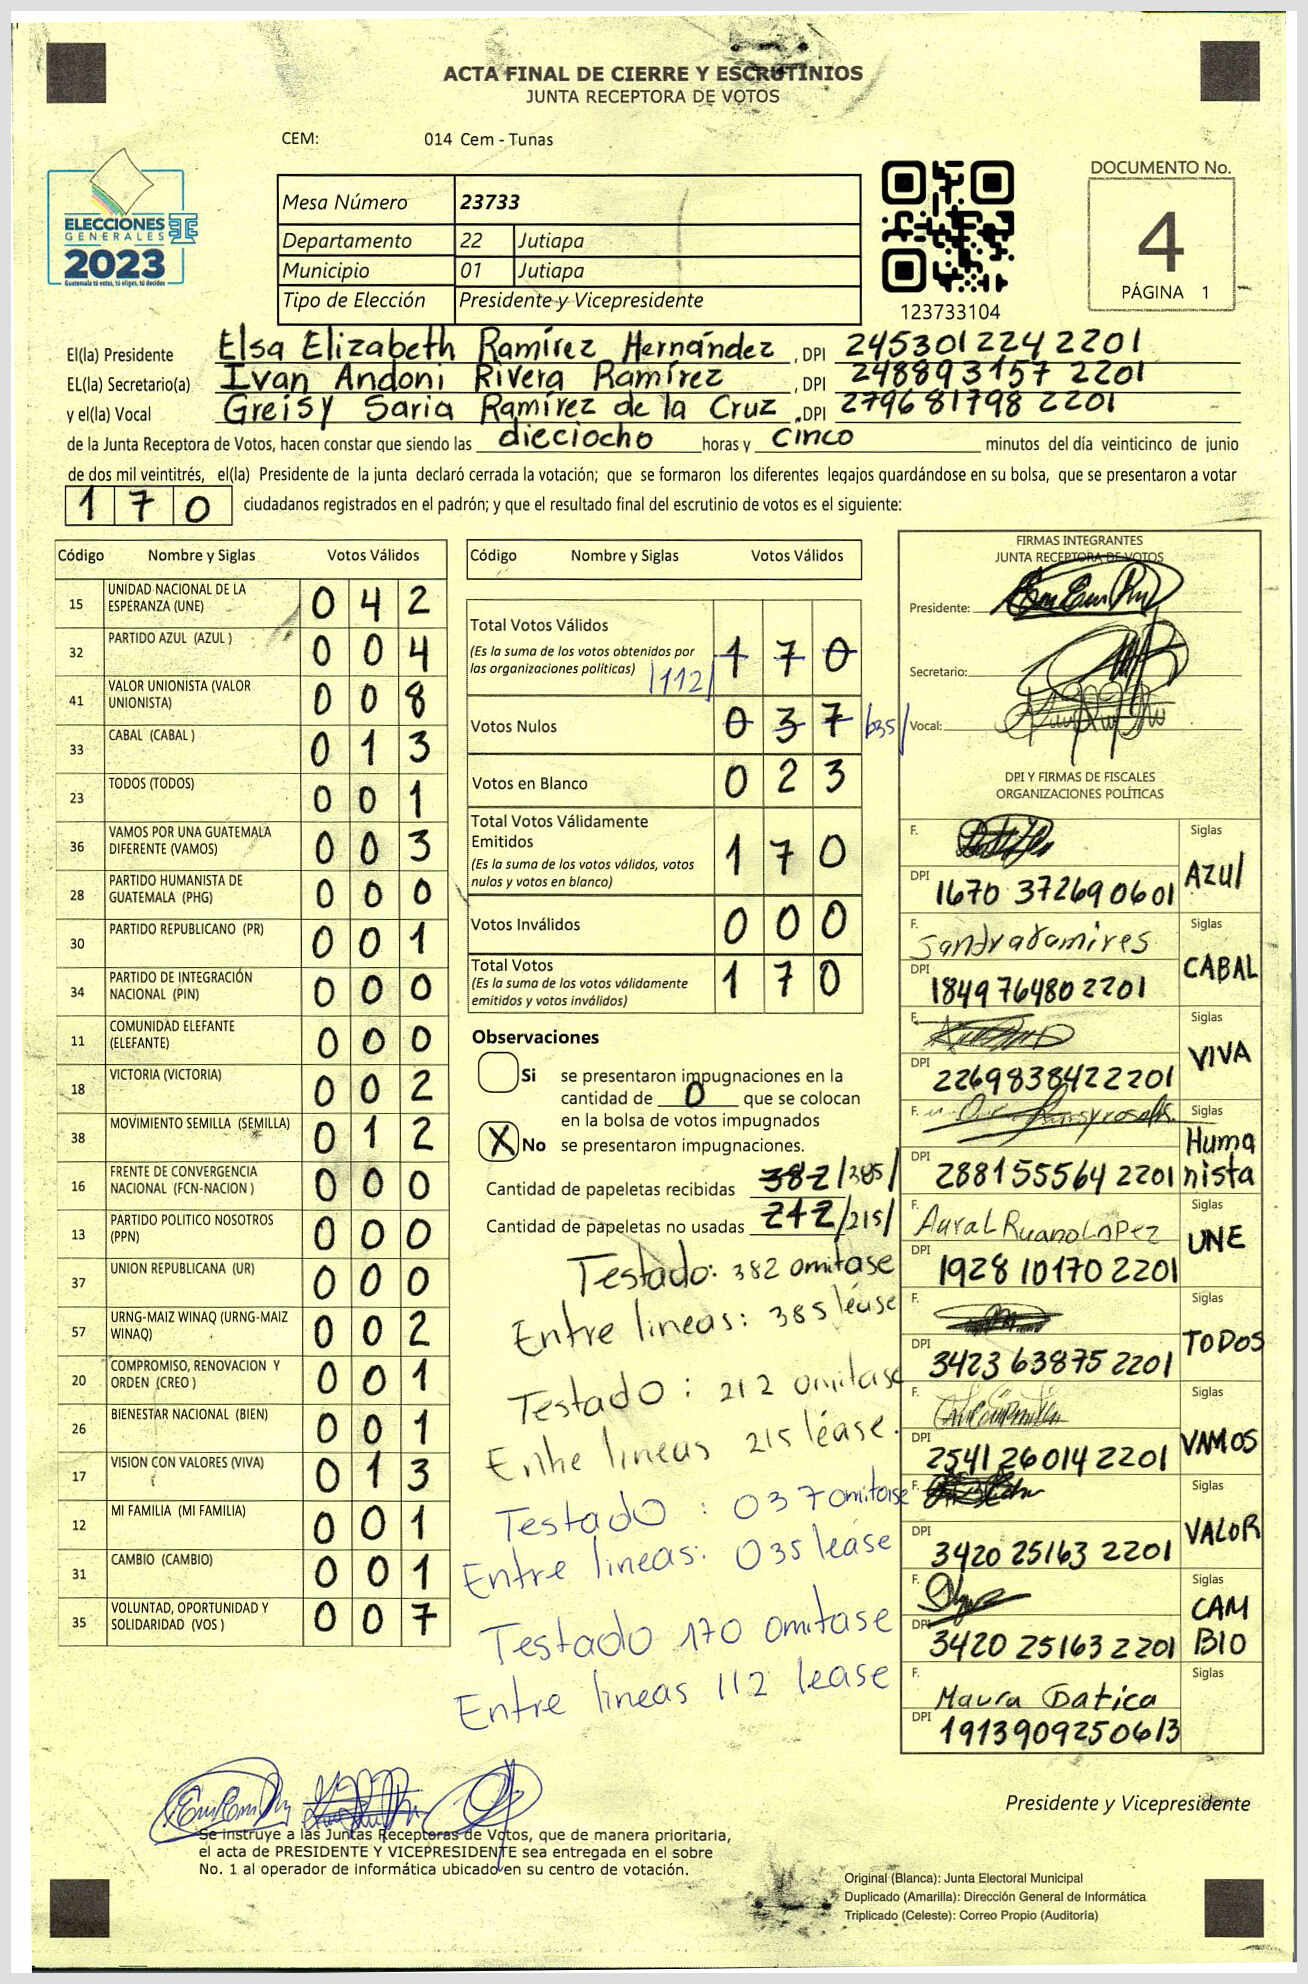 ACTA FINAL DE CIERRE Y ESCRUTINIOS
JUNTA RECEPTORA DE VOTOS
CEM: 014 Cem - Tunas
ELECCIONES
GENERALES
2023
Guatemala tú votas, tú eliges, tú decides
Mesa Número 23733
Departamento 22 Jutiapa
Municipio 01 Jutiapa
Tipo de Elección Presidente y Vicepresidente
123733104
DOCUMENTO No.
4
PÁGINA 1
El(la) Presidente Elsa Elizabeth Ramírez Hernández , DPI 245301224 2201
EL(la) Secretario(a) Ivan Andoni Rivera Ramírez , DPI 248893157 2201
y el(la) Vocal Greisy Saria Ramírez de la Cruz , DPI 279681798 2201
de la Junta Receptora de Votos, hacen constar que siendo las dieciocho horas y cinco minutos del día veinticinco de junio
de dos mil veintitrés, el(la) Presidente de la junta declaró cerrada la votación; que se formaron los diferentes legajos guardándose en su bolsa, que se presentaron a votar
170 ciudadanos registrados en el padrón; y que el resultado final del escrutinio de votos es el siguiente:
Código Nombre y Siglas Votos Válidos
15 UNIDAD NACIONAL DE LA ESPERANZA (UNE) 0 4 2
32 PARTIDO AZUL (AZUL ) 0 0 4
41 VALOR UNIONISTA (VALOR UNIONISTA) 0 0 8
33 CABAL (CABAL ) 0 1 3
23 TODOS (TODOS) 0 0 1
36 VAMOS POR UNA GUATEMALA DIFERENTE (VAMOS) 0 0 3
28 PARTIDO HUMANISTA DE GUATEMALA (PHG) 0 0 0
30 PARTIDO REPUBLICANO (PR) 0 0 1
34 PARTIDO DE INTEGRACIÓN NACIONAL (PIN) 0 0 0
11 COMUNIDAD ELEFANTE (ELEFANTE) 0 0 0
18 VICTORIA (VICTORIA) 0 0 2
38 MOVIMIENTO SEMILLA (SEMILLA) 0 1 2
16 FRENTE DE CONVERGENCIA NACIONAL (FCN-NACION ) 0 0 0
13 PARTIDO POLITICO NOSOTROS (PPN) 0 0 0
37 UNION REPUBLICANA (UR) 0 0 0
57 URNG-MAIZ WINAQ (URNG-MAIZ WINAQ) 0 0 2
20 COMPROMISO, RENOVACION Y ORDEN (CREO ) 0 0 1
26 BIENESTAR NACIONAL (BIEN) 0 0 1
17 VISION CON VALORES (VIVA) 0 1 3
12 MI FAMILIA (MI FAMILIA) 0 0 1
31 CAMBIO (CAMBIO) 0 0 1
35 VOLUNTAD, OPORTUNIDAD Y SOLIDARIDAD (VOS ) 0 0 7
Código Nombre y Siglas Votos Válidos
Total Votos Válidos
(Es la suma de los votos obtenidos por
las organizaciones políticas) /112/ 1 7 0
Votos Nulos 0 3 7 /035/
Votos en Blanco 0 2 3
Total Votos Válidamente
Emitidos 1 7 0
(Es la suma de los votos válidos, votos
nulos y votos en blanco)
Votos Inválidos 0 0 0
Total Votos 1 7 0
(Es la suma de los votos válidamente
emitidos y votos inválidos)
Observaciones
Si se presentaron impugnaciones en la
cantidad de 0 que se colocan
en la bolsa de votos impugnados
X No se presentaron impugnaciones.
Cantidad de papeletas recibidas 382 /385/
Cantidad de papeletas no usadas 212 /215/
Testado: 382 omitase
Entre lineas: 385 léase
Testado : 212 omitase
Entre lineas 215 léase.
Testado : 037 omitase
Entre lineas: 035 lease
Testado 170 omitase
Entre lineas 112 lease
FIRMAS INTEGRANTES
JUNTA RECEPTORA DE VOTOS
Presidente:
Secretario:
Vocal:
DPI Y FIRMAS DE FISCALES
ORGANIZACIONES POLÍTICAS
F. Siglas
DPI 1670 37269 0601 Azul
F. Sandra Ramires Siglas
DPI 1849 76480 2201 CABAL
F. Siglas
DPI 2269838422201 VIVA
F. Siglas
DPI 288155564 2201 Humanista
F. Aura L Ruano Lopez Siglas
DPI 1928 10170 2201 UNE
F. Siglas
DPI 3423 63875 2201 TODOS
F. Siglas
DPI 2541 26014 2201 VAMOS
F. Siglas
DPI 3420 25163 2201 VALOR
F. Siglas
DPI 3420 25163 2201 CAMBIO
F. Maura Gatica Siglas
DPI 1913909250613
Presidente y Vicepresidente
Se instruye a las Juntas Receptoras de Votos, que de manera prioritaria,
el acta de PRESIDENTE Y VICEPRESIDENTE sea entregada en el sobre
No. 1 al operador de informática ubicado en su centro de votación.
Original (Blanca): Junta Electoral Municipal
Duplicado (Amarilla): Dirección General de Informática
Triplicado (Celeste): Correo Propio (Auditoría)